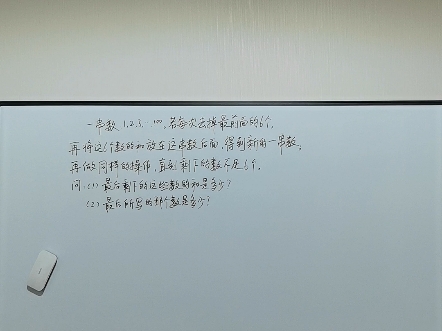 一串数1,2,3,…,若每次去掉最前面的6个,
再将这6个数的和放在这串数后面,得到新的一串数,
再做同样的操作,直到剩下的数不足6个。
问:(1)最后剩下的这些数的和是多少?
(2)最后所写的那个数是多少?